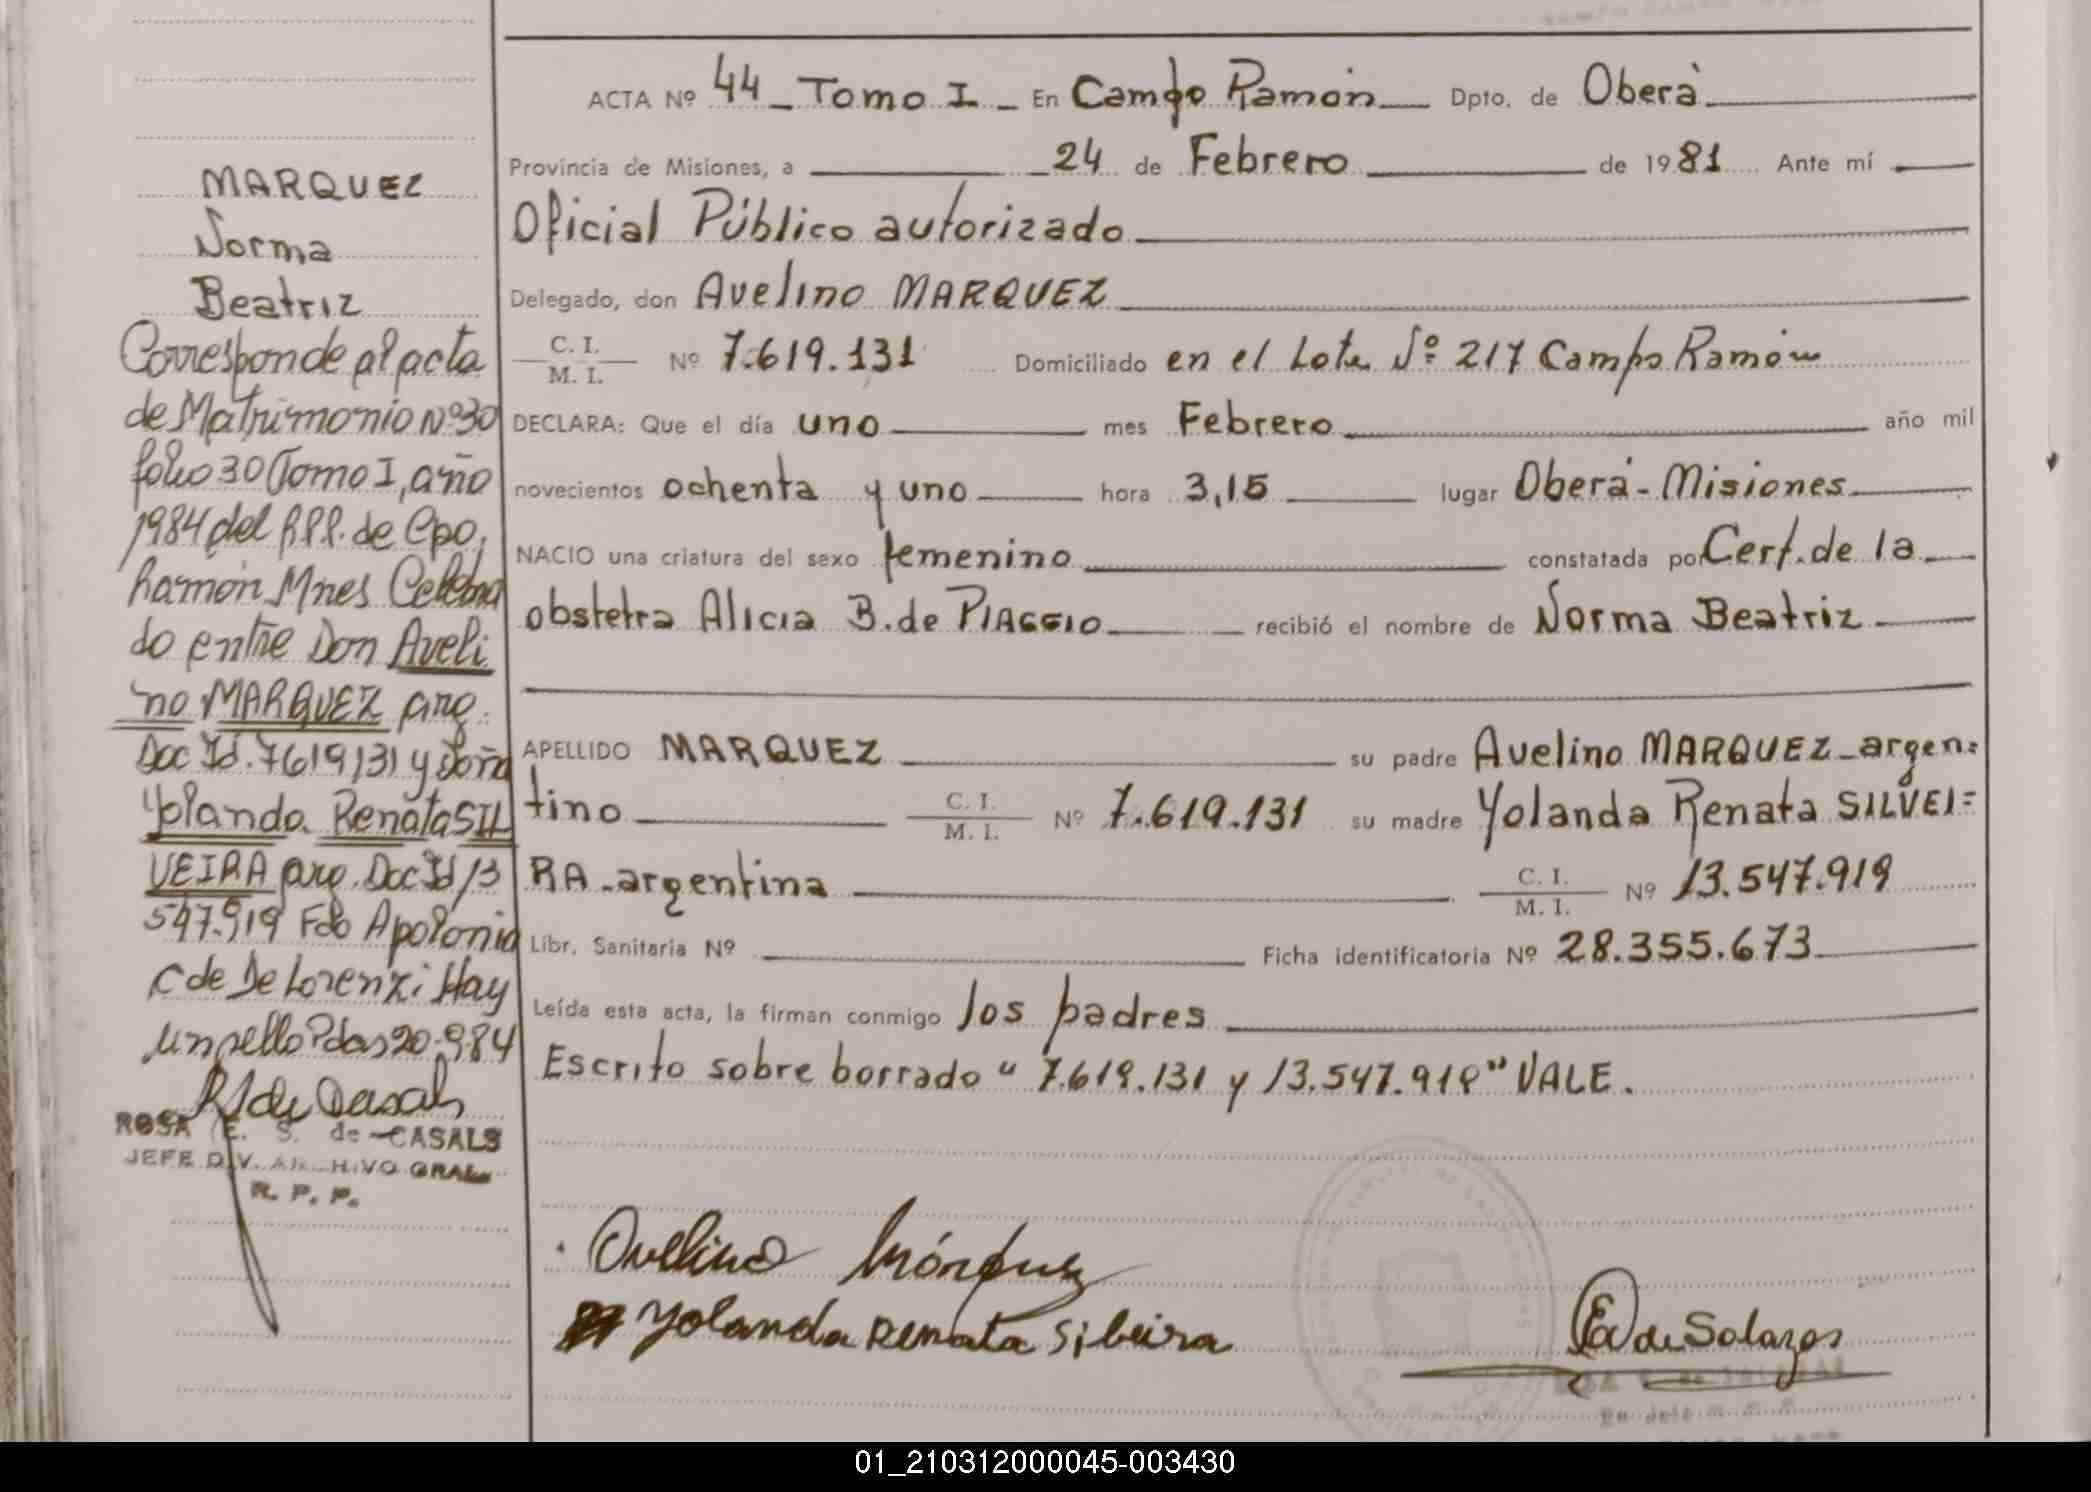 ACTA Nº 44 - Tomo I - En Campo Ramón Dpto. de Oberá
Provincia de Misiones, a 24 de Febrero de 1981 Ante mí
Oficial Público autorizado
Delegado, don Avelino MARQUEZ
C. I. / M. I. Nº 7.619.131 Domiciliado en el Lote Nº 217 Campo Ramón
DECLARA: Que el día uno mes Febrero año mil
novecientos ochenta y uno hora 3,15 lugar Oberá - Misiones
NACIO una criatura del sexo femenino constatada por Cert. de la
obstetra Alicia B. de PIAGGIO recibió el nombre de Norma Beatriz
APELLIDO MARQUEZ su padre Avelino MARQUEZ - argen=
tino C. I. / M. I. Nº 7.619.131 su madre Yolanda Renata SILVEI=
RA - argentina C. I. / M. I. Nº 13.547.919
Libr. Sanitaria Nº Ficha identificatoria Nº 28.355.673
Leída esta acta, la firman conmigo los padres
Escrito sobre borrado " 7.619.131 y 13.547.919" VALE.
Avelino Márquez
Yolanda Renata Sibeira
de Solazos
MARQUEZ
Norma
Beatriz
Corresponde al acta
de Matrimonio Nº 30
folio 30 Tomo I, año
1984 del R.P.P. de Cpo.
Ramón Mnes Celebra
do entre Don Aveli
no MARQUEZ arg.
Doc Id. 7619131 y Doña
Yolanda Renata SIL
VEIRA arg. Doc Id 13
547.919 Fdo Apolonia
C de De Lorenzi Hay
un sello Pdas 20-9-84
ROSA E. S. de CASALS
JEFE DIV. ARCHIVO GRAL
R. P. P.
01_210312000045-003430